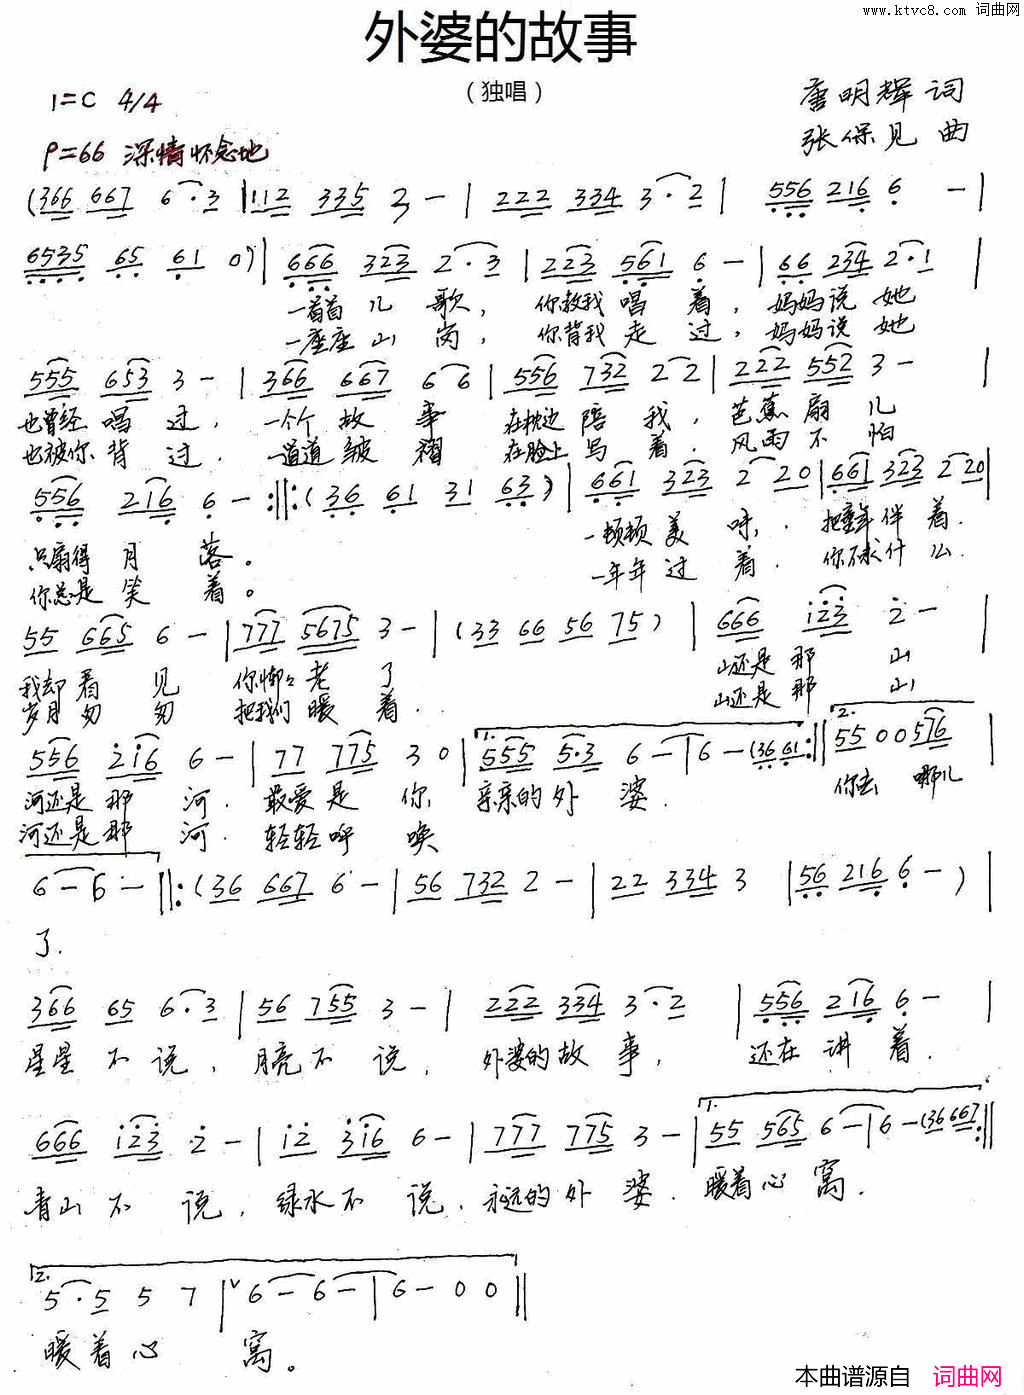 www.ktvc8.com 词曲网
外婆的故事
（独唱）
1=C 4/4
唐明辉 词
张保见 曲
♩=66 深情怀念地
(366 667 6·3 | 112 335 2 - | 222 334 3·2 | 556 216 6 - |
6535 65 61 0) | 666 323 2·3 | 223 561 6 - | 66 234 2·1 |
一首首儿歌， 你教我唱着， 妈妈说她
一座座山岗， 你背我走过， 妈妈说她
555 653 3 - | 366 667 6 6 | 556 732 2 2 | 222 552 3 - |
也曾经唱过， 一个个故事 在枕边陪我， 芭蕉扇儿
也被你背过． 一道道皱褶 在脸上写着． 风雨不怕
556 216 6 - :||: (36 61 31 63) | 661 323 2 20 | 661 323 2 20 |
只扇得月落。 一顿顿美味， 把童年伴着．
你总是笑着。 一年年过着． 你不求什么．
55 665 6 - | 777 5675 3 - | (33 66 56 75) | 666 123 2 - |
我却看见 你慚々老了 山还是那山
岁月匆匆 把我们暖着． 山还是那山
556 216 6 - | 77 775 3 0 | 1. 555 5·3 6 - | 6 - (36 61 :|| 2. 55 0 0 576 |
河还是那河． 最爱是你， 亲亲的外婆． 你去哪儿
河还是那河． 轻轻呼唤
6 - 6 - ||: (36 667 6 - | 56 732 2 - | 22 334 3 | 56 216 6 - ) |
了．
366 65 6·3 | 56 755 3 - | 222 334 3·2 | 556 216 6 - |
星星不说， 月亮不说， 外婆的故事， 还在讲着．
666 123 2 - | 12 316 6 - | 777 775 3 - | 1. 55 565 6 - | 6 - (36 667 :||
青山不说， 绿水不说， 永远的外婆． 暖着心窝．
2. 5·5 5 7 | 6 - 6 - | 6 - 0 0 ||
暖着心窝。
本曲谱源自 词曲网